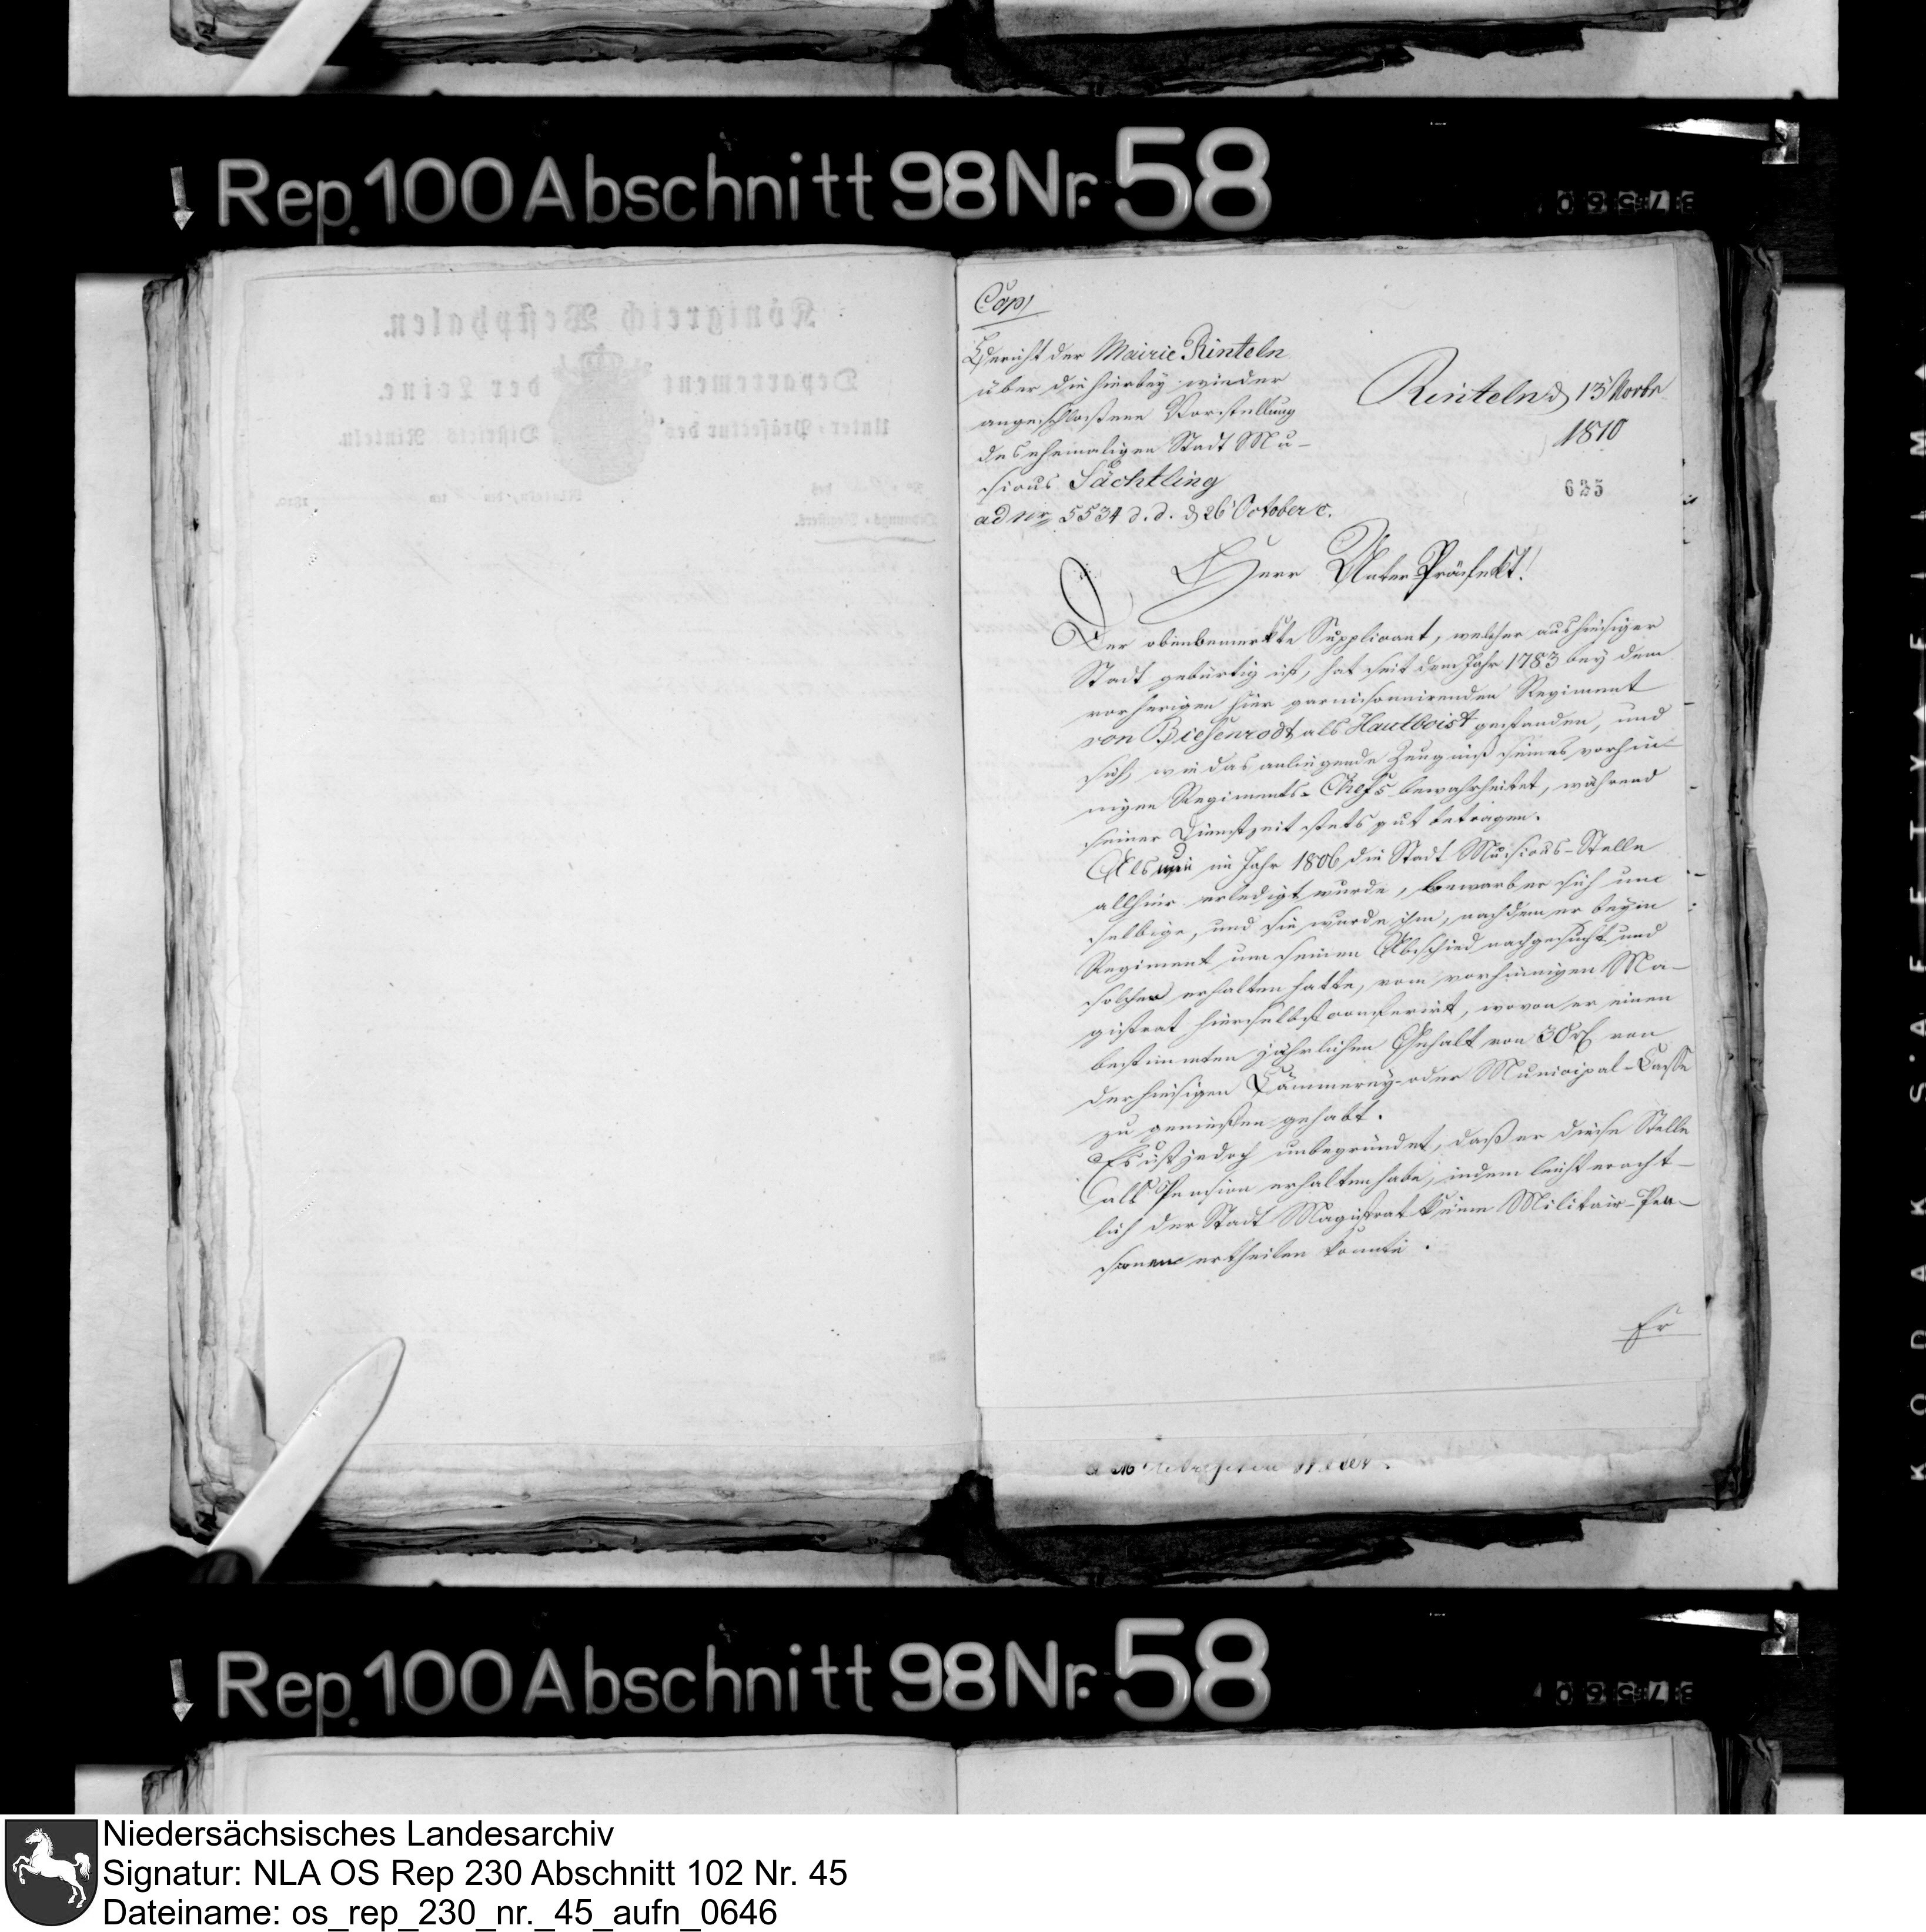 Rep. 100 Abschnitt 98 Nr. 58
Königreich Westphalen.
Departement der Leine.
Unter-Präfectur des Districts Rinteln.
Cop/
Bericht der Mairie Rinteln
über die hierbey wieder
angeschloßene Vorstellung
des ehemaligen Stadt Mu-
sicus Sächtling
ad Nr. 5534 d. d. d 26 October c.
Rinteln d 13 Novbr
1810
635
Herr Unter Präfekt!
Der obenbemerkte Supplicant, welcher aus hiesiger
Stadt gebürtig ist, hat seit dem Jahr 1783 bey dem
vorherigen hier garnisonnirenden Regiment
von Biesenrodt als Hautboist gestanden, und
sich, wie das anliegende Zeugniß seines vorhin-
nigen Regiments-Chefs bewahrheitet, während
seiner Dienstzeit stets gut betragen.
Als nun im Jahr 1806 die Stadt Musicus-Stelle
allhier erledigt wurde, bewarb er sich um
selbige, und sie wurde ihm, nachdem er beym
Regiment um seinen Abschied nachgesucht und
solchen erhalten hatte, vom vorhinnigen Ma-
gistrat hierselbst conferirt, wovon er einen
bestimmten jährlichen Gehalt von 30 rl von
der hiesigen Cämmerey- oder Municipal-Casse
zu genießen gehabt.
Es ist jedoch unbegründet, daß er diese Stelle
als Pension erhalten habe, indem leicht eracht-
lich der Stadt Magistrat keine Militair-Pen-
sionen ertheilen konnte.
Er
Rep. 100 Abschnitt 98 Nr. 58
KODAK SAFETY FILM
Niedersächsisches Landesarchiv
Signatur: NLA OS Rep 230 Abschnitt 102 Nr. 45
Dateiname: os_rep_230_nr._45_aufn_0646